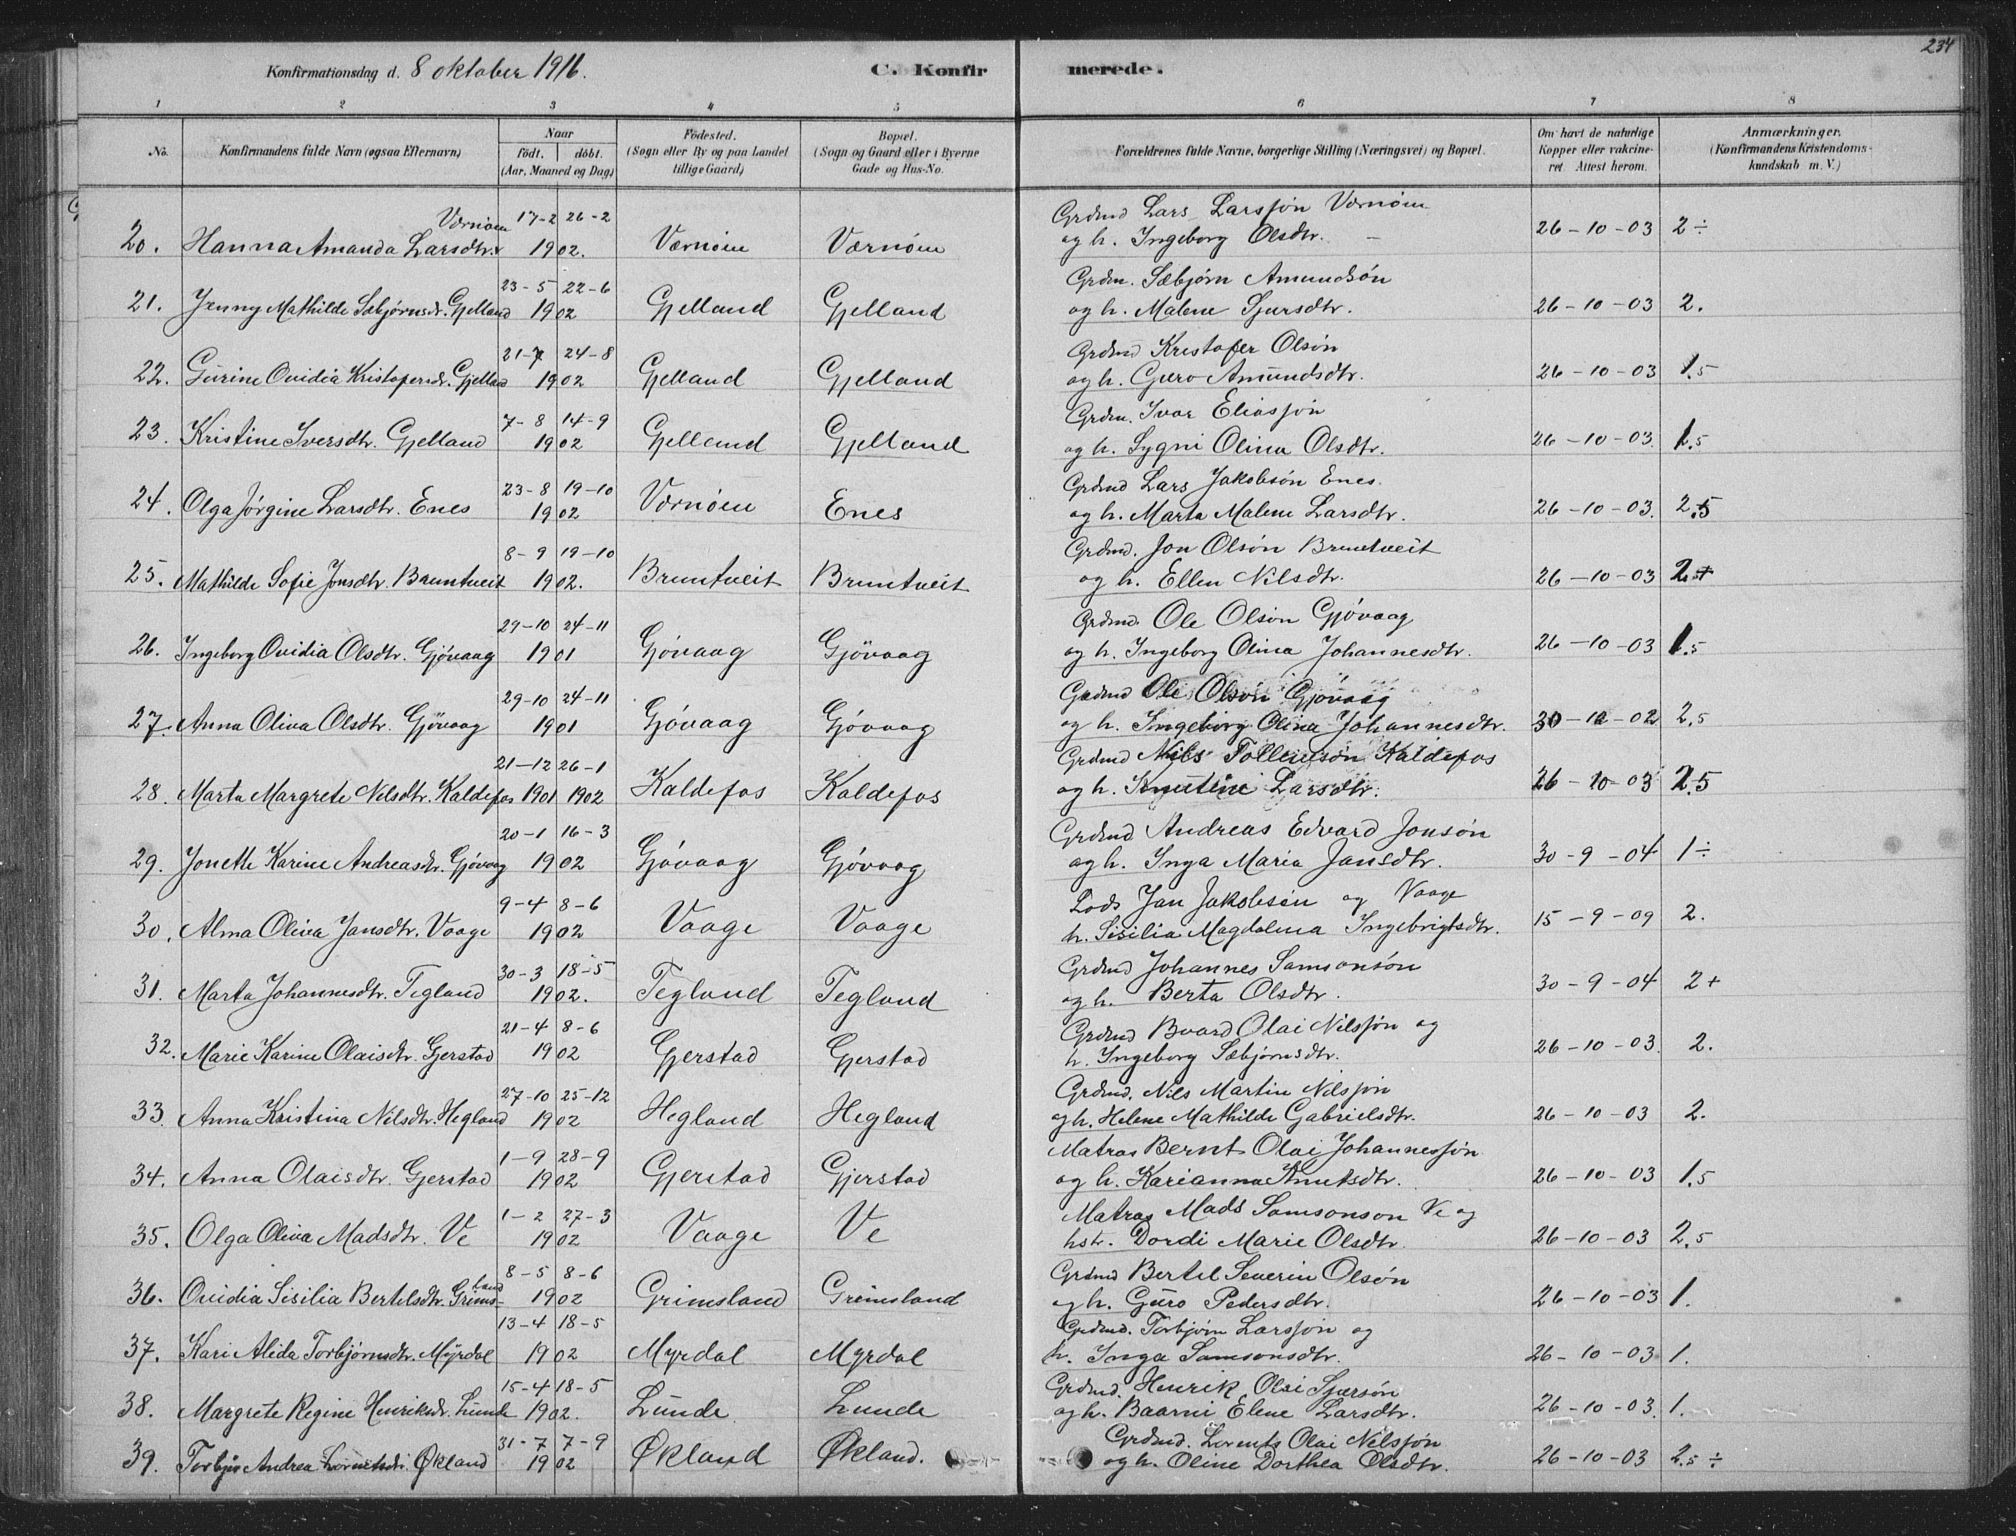 234
Konfirmationsdag d. 8 oktober 1916. C. Konfirmerede.
1 2 3 4 5 6 7 8
No. Konfirmandens fulde Navn (ogsaa Efternavn) Naar født. døbt. (Aar, Maaned og Dag) Fødested. (Sogn eller By og paa Landet tillige Gaard) Bopæl. (Sogn og Gaard eller i Byerne Gade og Hus-No. Forældrenes fulde Navne, borgerlige Stilling (Næringsvei) og Bopæl. Om havt de naturlige Kopper eller vakcineret. Attest herom. Anmærkninger. (Konfirmandens Kristendomskundskab m. V.)
Værnøen 17-2 26-2 Grdmd Lars Larssøn Værnøen
20. Hanna Amanda Larsdtr. 1902. Værnøen Værnøen og h. Ingeborg Olsdtr. 26-10-03 2 ÷
23-5 22-6 Grdm. Sæbjørn Amundsøn
21. Jenny Mathilde Sæbjørnsd. Gjelland 1902 Gjelland Gjelland og h. Malene Sjursdtr. 26-10-03 2.
21-7 24-8 Grdmd Kristofer Olsøn
22. Gurine Ovidia Kristofersd. Gjelland 1902 Gjelland Gjelland og h. Guro Amundsdtr. 26-10-03 1.5
7-8 14-9 Grdm. Ivar Eliassøn
23. Kristine Iversdtr. Gjelland 1902 Gjelland Gjelland og h. Sygni Olina Olsdtr. 26-10-03. 1.5
23-8 19-10 Grdmd Lars Jakobsøn Enes.
24. Olga Jørgine Larsdtr. Enes 1902 Værnøen Enes og h. Marta Malene Larsdtr. 26-10-03. 2.5
8-9 19-10 Grdmd. Jon Olsøn Bruntveit
25. Mathilde Sofie Jonsdtr. Bruntveit 1902. Bruntveit Bruntveit og h. Ellen Nilsdtr. 26-10-03 2.
29-10 24-11 Grdmd. Ole Olsøn Gjøvaag
26. Ingeborg Ovidia Olsdtr. Gjøvaag 1901 Gjøvaag Gjøvaag og h. Ingeborg Olina Johannesdtr. 26-10-03 1.5
29-10 24-11 Grdmd Ole Olsøn Gjøvaag
27. Anna Oliva Olsdtr. Gjøvaag 1901 Gjøvaag Gjøvaag og h. Ingeborg Olina Johannesdtr. 30-10-02 2.5
21-12 26-1 Grdmd Nils Tolleivsøn Kaldefos
28. Marta Margrete Nilsdtr. Kaldefos 1901 1902 Kaldefos Kaldefos og h. Knutine Larsdtr. 26-10-03 2.5
20-1 16-3 Grdmd Andreas Edvard Jonsøn
29. Jonette Karine Andreasdtr. Gjøvaag 1902 Gjøvaag Gjøvaag og h. Inga Maria Jansdtr. 30-9-04 1 ÷
9-4 8-6 Lods Jan Jakobsøn og Vaage
30. Alma Oliva Jansdtr. Vaage 1902 Vaage Vaage h. Sisilia Magdalena Ingebrigtsdtr. 15-9-09 2.
30-3 18-5 Grdmd Johannes Samsonsøn
31. Marta Johannesdtr. Tegland 1902. Tegland Tegland og h. Berta Olsdtr. 30-9-04 2+
21-4 8-6 Grdmd Baard Olai Nilssøn og
32. Marie Karine Olaisdtr. Gjerstad 1902 Gjerstad Gjerstad h. Ingeborg Sæbjørnsdtr. 26-10-03. 2.
27-10 25-12 Grdmd. Nils Martin Nilssøn
33. Anna Kristina Nilsdtr. Hegland 1902 Hegland Hegland og h. Helene Mathilde Gabrielsdtr. 26-10-03 2.
1-9 28-9 Matros Bernt Olai Johannessøn
34. Anna Olaisdtr. Gjerstad 1902 Gjerstad Gjerstad og h. Karianna Knutsdtr. 26-10-03 1.5
1-2 27-3 Matros Mads Samsonson Ve og
35. Olga Oliva Madsdtr. Ve 1902 Vaage Ve hstr. Dordi Marie Olsdtr. 26-10-03 2.5
land 8-5 8-6 Grdmd Bertel Severin Olsøn
36. Ovidia Sisilia Bertelsdtr. Grims- 1902 Grimsland Grimsland og h. Guro Pedersdtr. 26-10-03 1.
13-4 18-5 Grdmd. Torbjørn Larssøn og
37. Kari Alida Torbjørnsdtr. Myrdal 1902 Myrdal Myrdal h. Inga Samsonsdtr. 26-10-03 1.
15-4 18-5 Grdmd. Henrik Olai Sjursøn
38. Margrete Regine Henriksdr. Lunde 1902. Lunde Lunde og h. Baarni Elene Larsdtr. 26-10-03. 1.
31-7 7-9 Grdmd. Lorents Olai Nilssøn
39. Andrea Lorentsdr. Økland 1902 Økland Økland. og h. Oline Dorthea Olsdtr. 26-10-03 2.5 ÷